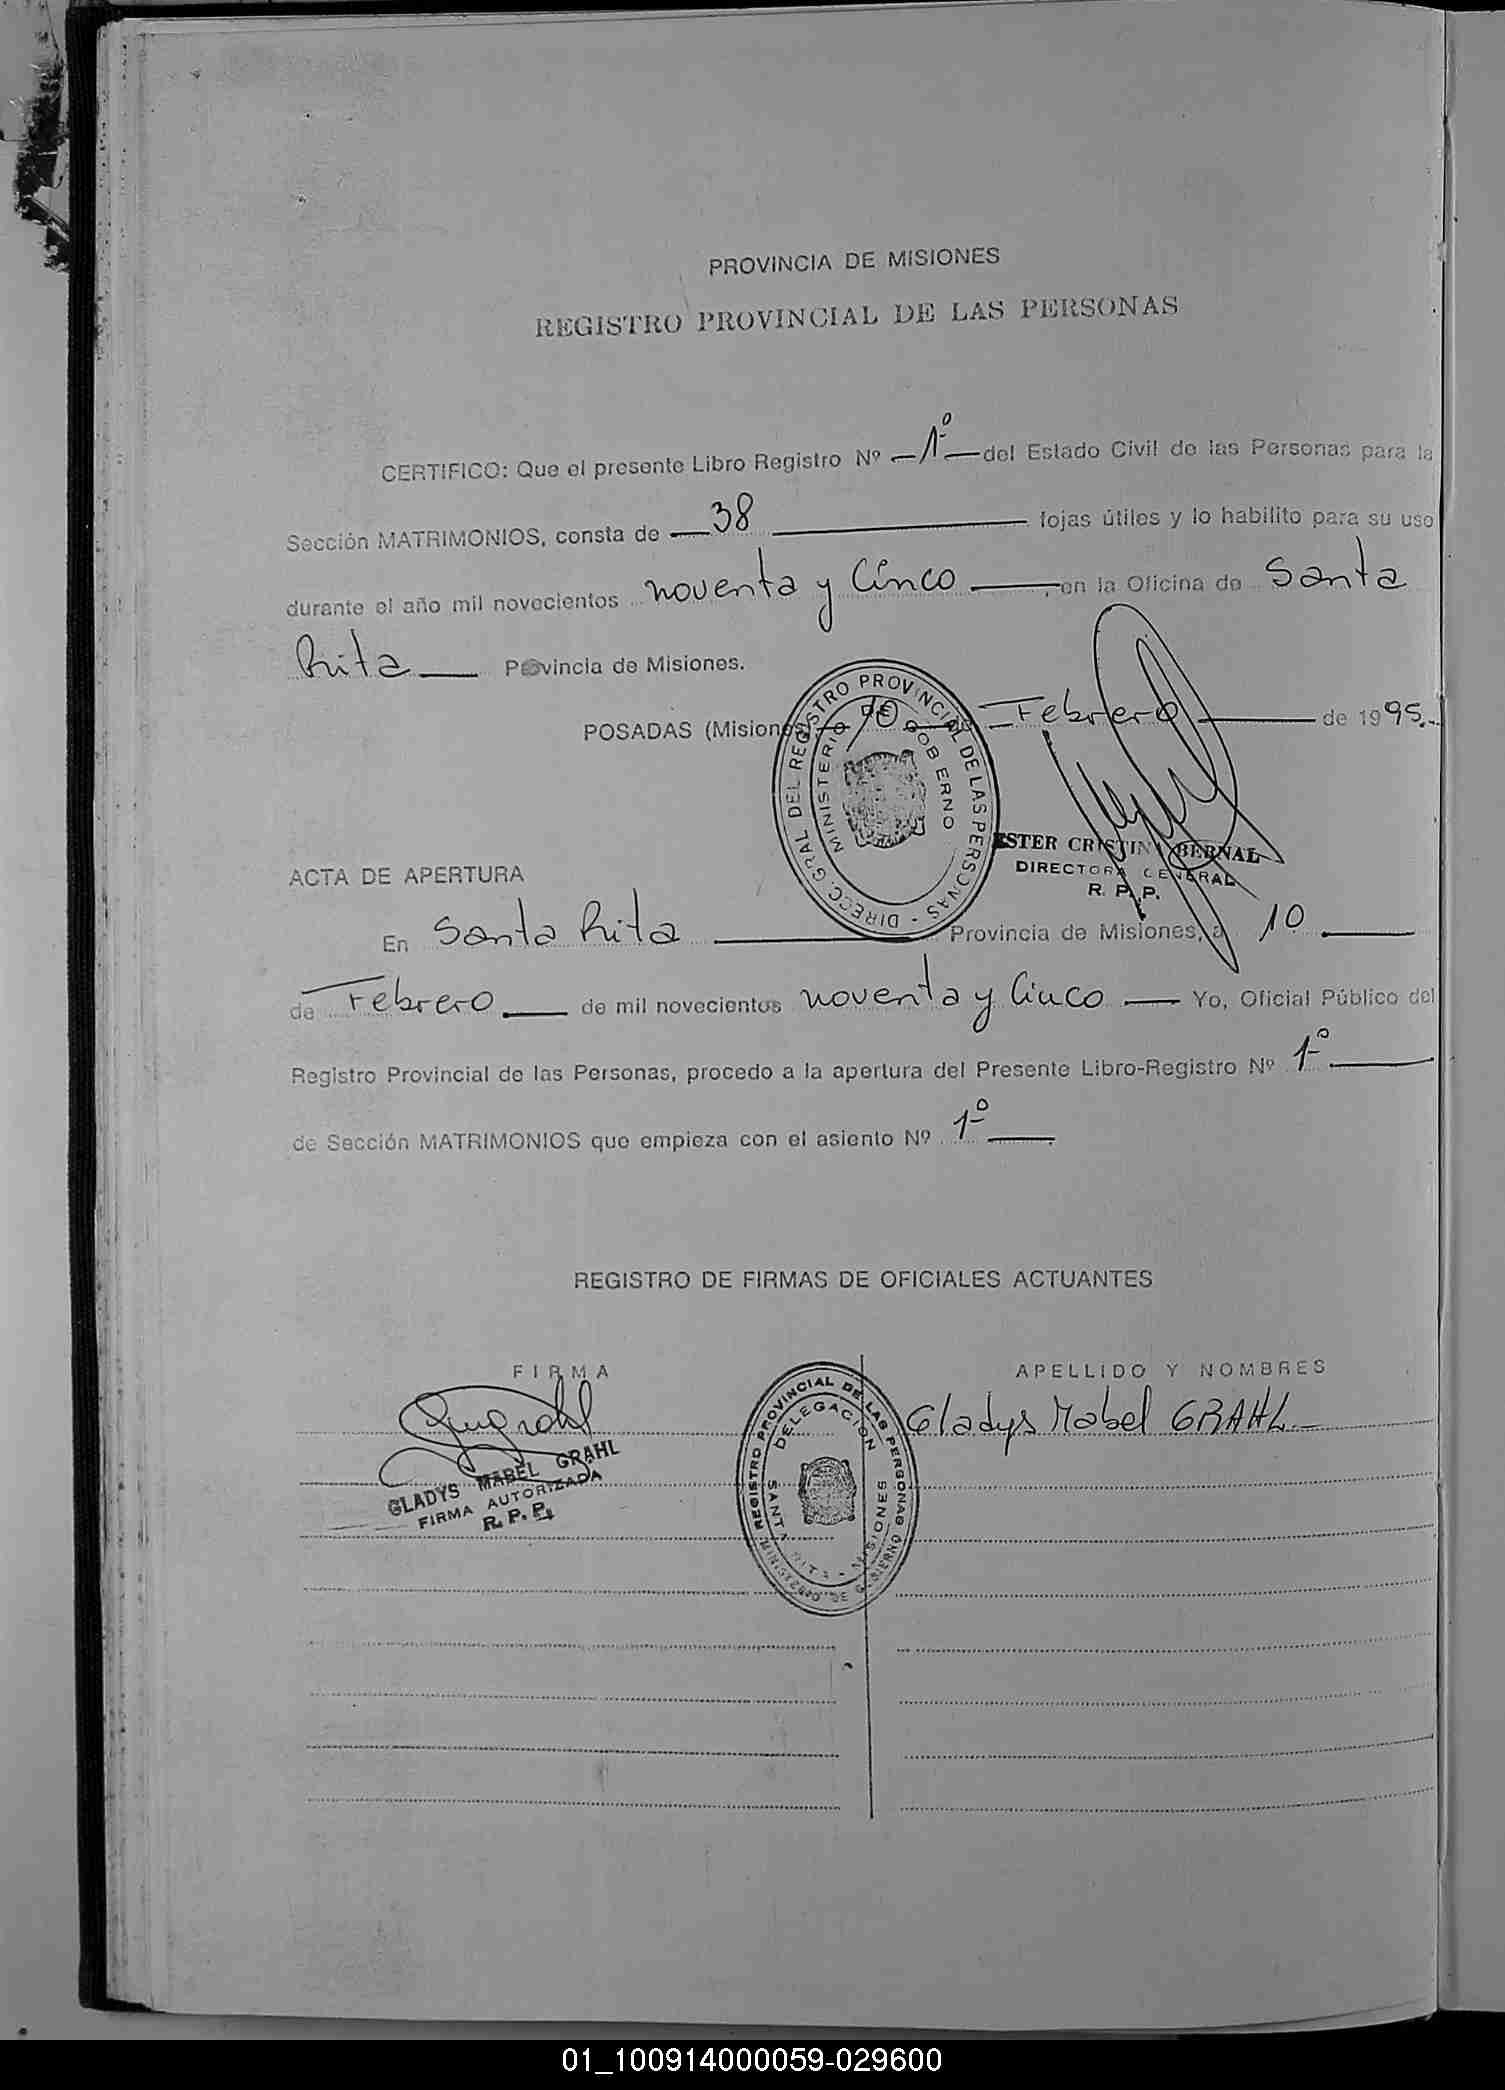 PROVINCIA DE MISIONES
REGISTRO PROVINCIAL DE LAS PERSONAS
CERTIFICO: Que el presente Libro Registro Nº 1º del Estado Civil de las Personas para la
Sección MATRIMONIOS, consta de 38 fojas útiles y lo habilito para su uso
durante el año mil novecientos noventa y Cinco, en la Oficina de Santa
Rita Provincia de Misiones.
POSADAS (Misiones) 10 de Febrero de 1995.
DIRECC. GRAL DEL REGISTRO PROVINCIAL DE LAS PERSONAS -
MINISTERIO DE GOBIERNO
ESTER CRISTINA BERNAL
DIRECTORA GENERAL
R. P. P.
ACTA DE APERTURA
En Santa Rita Provincia de Misiones, a 10
de Febrero de mil novecientos noventa y Cinco Yo, Oficial Público del
Registro Provincial de las Personas, procedo a la apertura del Presente Libro-Registro Nº 1º
de Sección MATRIMONIOS que empieza con el asiento Nº 1º
REGISTRO DE FIRMAS DE OFICIALES ACTUANTES
FIRMA
APELLIDO Y NOMBRES
Gladys Mabel GRAHL
GLADYS MABEL GRAHL
FIRMA AUTORIZADA
R. P. P.
REGISTRO PROVINCIAL DE LAS PERSONAS
MINISTERIO DE GOBIERNO
DELEGACION
SANTA RITA - MISIONES
01_100914000059-029600